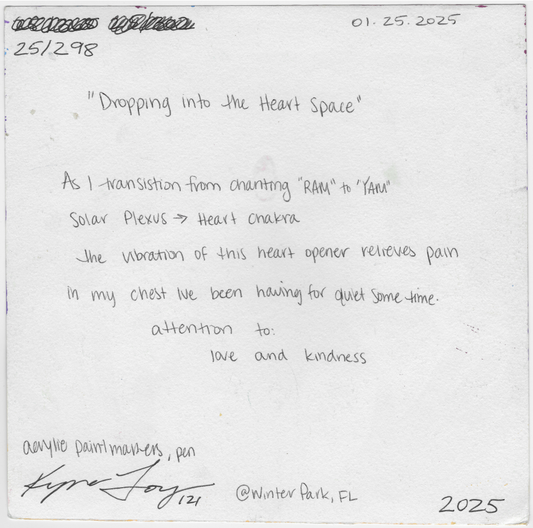 01.25.2025
25/298
"Dropping into the Heart Space"
As I transistion from chanting "RAM" to "YAM"
Solar Plexus → Heart chakra
The vibration of this heart opener relieves pain
in my chest Ive been having for quiet some time.
attention to:
love and kindness
acrylic paint markers, pen
121
@Winter Park, FL
2025